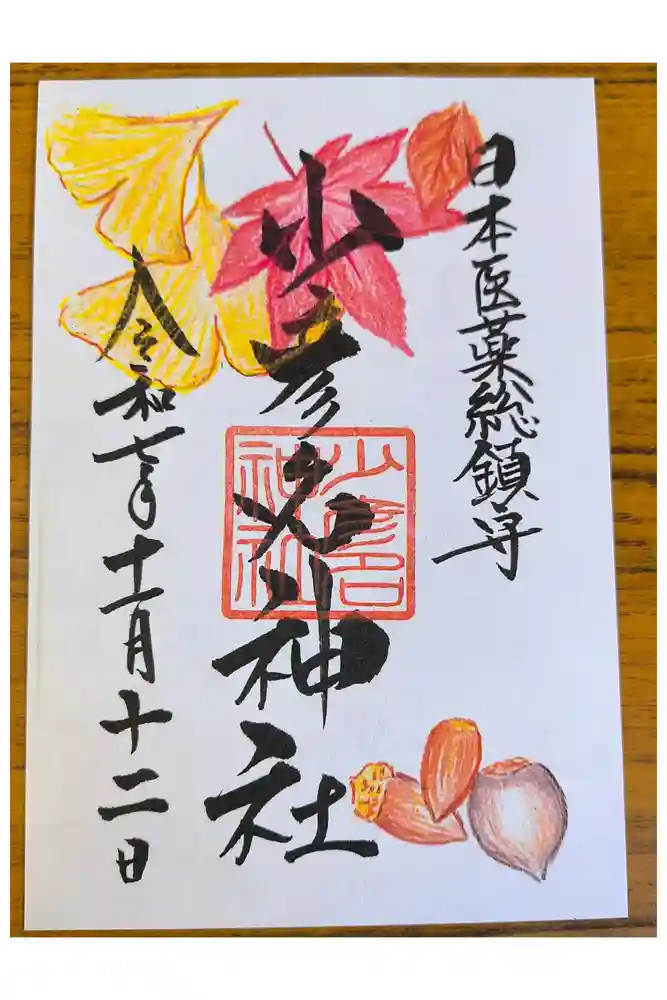 日本医薬総鎮守
少彦名神社
少彦名
神社
令和七年十一月十二日